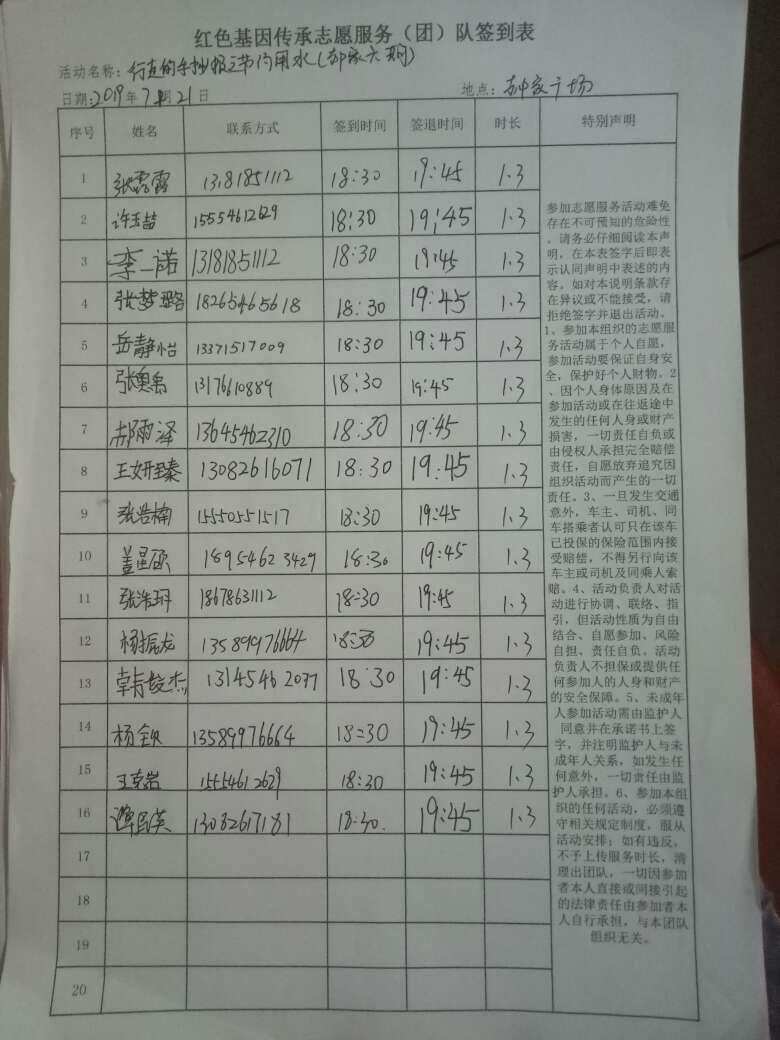 红色基因传承志愿服务（团）队签到表
活动名称：行走的手抄报之节约用水（郝家六期）
日期：2019年7月21日 地点：郝家广场
序号 姓名 联系方式 签到时间 签退时间 时长 特别声明
1 张露露 13181851112 18:30 19:45 1.3
2 许玉喆 15554612629 18:30 19:45 1.3
3 李一诺 13181851112 18:30 19:45 1.3
4 张梦璐 18265465618 18:30 19:45 1.3
5 岳静怡 13371517009 18:30 19:45 1.3
6 张奥禹 13176610889 18:30 19:45 1.3
7 郝雨泽 13645462310 18:30 19:45 1.3
8 王妍臻 13082616071 18:30 19:45 1.3
9 张浩楠 15550551517 18:30 19:45 1.3
10 盖星硕 18954623429 18:30 19:45 1.3
11 张浩玥 18678631112 18:30 19:45 1.3
12 杨振龙 13589976664 18:30 19:45 1.3
13 韩俊杰 13145462077 18:30 19:45 1.3
14 杨钦 13589976664 18:30 19:45 1.3
15 王克岩 15554612629 18:30 19:45 1.3
16 谭民英 13082617181 18:30 19:45 1.3
17
18
19
20
参加志愿服务活动难免
存在不可预知的危险性
，请务必仔细阅读本声
明，在本表签字后即表
示认同声明中表述的内
容。如对本说明条款存
在异议或不能接受，请
拒绝签字并退出活动。
1、参加本组织的志愿服
务活动属于个人自愿，
参加活动要保证自身安
全，保护好个人财物。2
、因个人身体原因及在
参加活动或在往返途中
发生的任何人身或财产
损害，一切责任自负或
由侵权人承担完全赔偿
责任，自愿放弃追究因
组织活动而产生的一切
责任。3、一旦发生交通
意外，车主、司机、同
车搭乘者认可只在该车
已投保的保险范围内接
受赔偿，不得另行向该
车主或司机及同乘人索
赔。4、活动负责人对活
动进行协调、联络、指
引，但活动性质为自由
结合、自愿参加、风险
自担、责任自负。活动
负责人不担保或提供任
何参加人的人身和财产
的安全保障。5、未成年
人参加活动需由监护人
同意并在承诺书上签
字，并注明监护人与未
成年人关系，如发生任
何意外，一切责任由监
护人承担。6、参加本组
织的任何活动，必须遵
守相关规定制度，服从
活动安排；如有违反，
不予上传服务时长，清
理出团队，一切因参加
者本人直接或间接引起
的法律责任由参加者本
人自行承担，与本团队
组织无关。